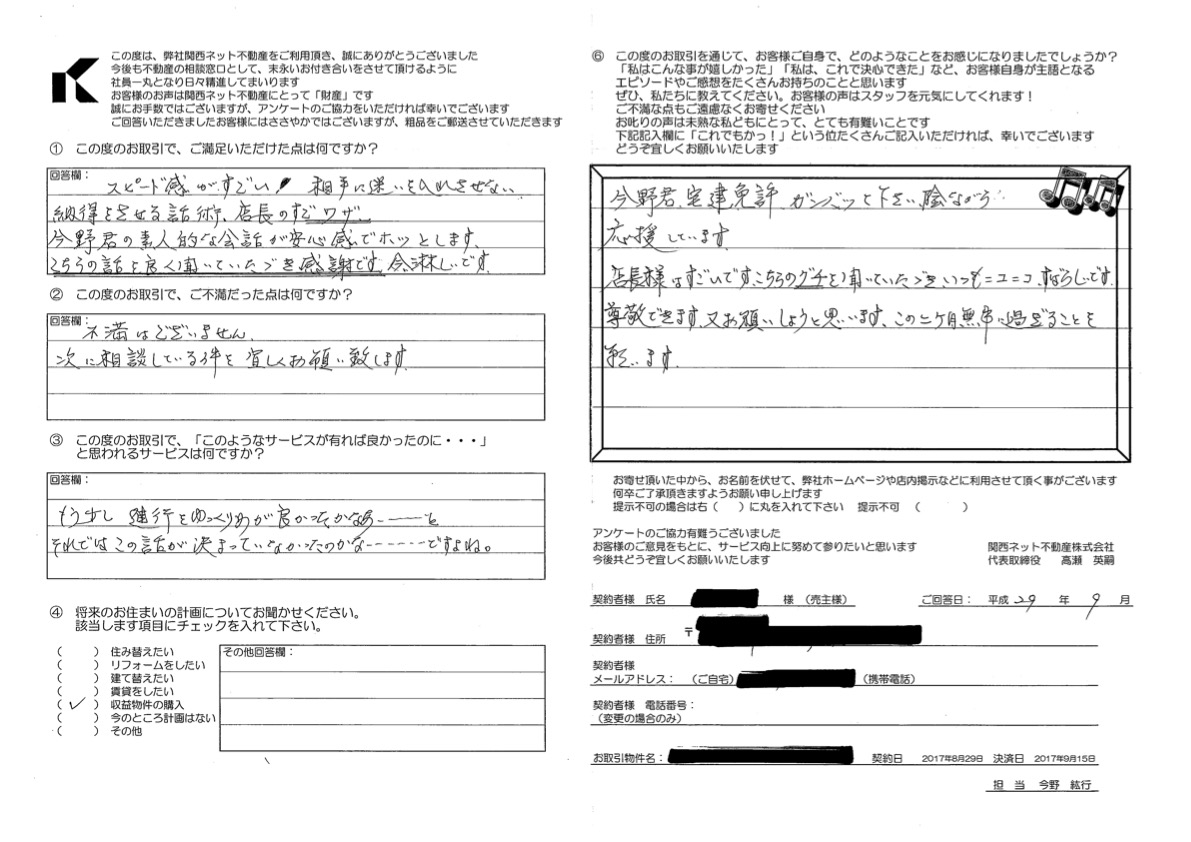 この度は、弊社関西ネット不動産をご利用頂き、誠にありがとうございました
今後も不動産の相談窓口として、末永いお付き合いをさせて頂けるように
社員一丸となり日々精進してまいります
お客様のお声は関西ネット不動産にとって「財産」です
誠にお手数ではございますが、アンケートのご協力をいただければ幸いでございます
ご回答いただきましたお客様にはささやかではございますが、粗品をご郵送させていただきます
① この度のお取引で、ご満足いただけた点は何ですか？
回答欄：
スピード感がすごい! 相手に迷いを入れさせない
納得をさせる話術、店長のすごワザ。
今野君の素人的な会話が安心感でホッとします。
こちらの話を良く聞いていただき感謝です。今、淋しいです。
② この度のお取引で、ご不満だった点は何ですか？
回答欄：
不満はございません。
次に相談している件を宜しくお願い致します。
③ この度のお取引で、「このようなサービスが有れば良かったのに・・・」
と思われるサービスは何ですか？
回答欄：
もう少し 進行をゆっくりめが良かったかなあーと
それではこの話が決まっていなかったのかな------ですよね。
④ 将来のお住まいの計画についてお聞かせください。
該当します項目にチェックを入れて下さい。
（　　）住み替えたい
（　　）リフォームをしたい
（　　）建て替えたい
（　　）賃貸をしたい
（✓）収益物件の購入
（　　）今のところ計画はない
（　　）その他
その他回答欄：
⑥ この度のお取引を通じて、お客様ご自身で、どのようなことをお感じになりましたでしょうか？
「私はこんな事が嬉しかった」「私は、これで決心できた」など、お客様自身が主語となる
エピソードやご感想をたくさんお持ちのことと思います
ぜひ、私たちに教えてください。お客様の声はスタッフを元気にしてくれます！
ご不満な点もご遠慮なくお寄せください
お叱りの声は未熟な私どもにとって、とても有難いことです
下記記入欄に「これでもかっ！」という位たくさんご記入いただければ、幸いでございます
どうぞ宜しくお願いいたします
今野君、宅建免許 ガンバッて下さい。陰ながら
応援しています。
店長様はすごいです。こちらのグチを聞いていただき、いつもニコニコ、すばらしいです。
尊敬できます。又お願いしようと思います。この二ケ月無事に過ぎることを
祈ります。
お寄せ頂いた中から、お名前を伏せて、弊社ホームページや店内掲示などに利用させて頂く事がございます
何卒ご了承頂きますようお願い申し上げます
提示不可の場合は右（　　）に丸を入れて下さい　提示不可　（　　　　）
アンケートのご協力有難うございました
お客様のご意見をもとに、サービス向上に努めて参りたいと思います
今後共どうぞ宜しくお願いいたします
関西ネット不動産株式会社
代表取締役　高瀬 英嗣
契約者様 氏名　様（売主様）　ご回答日： 平成 29 年 9 月
契約者様 住所　〒
契約者様
メールアドレス：（ご自宅）　（携帯電話）
契約者様 電話番号：
（変更の場合のみ）
お取引物件名：　契約日 2017年8月29日 決済日 2017年9月15日
担 当 今野 紘行